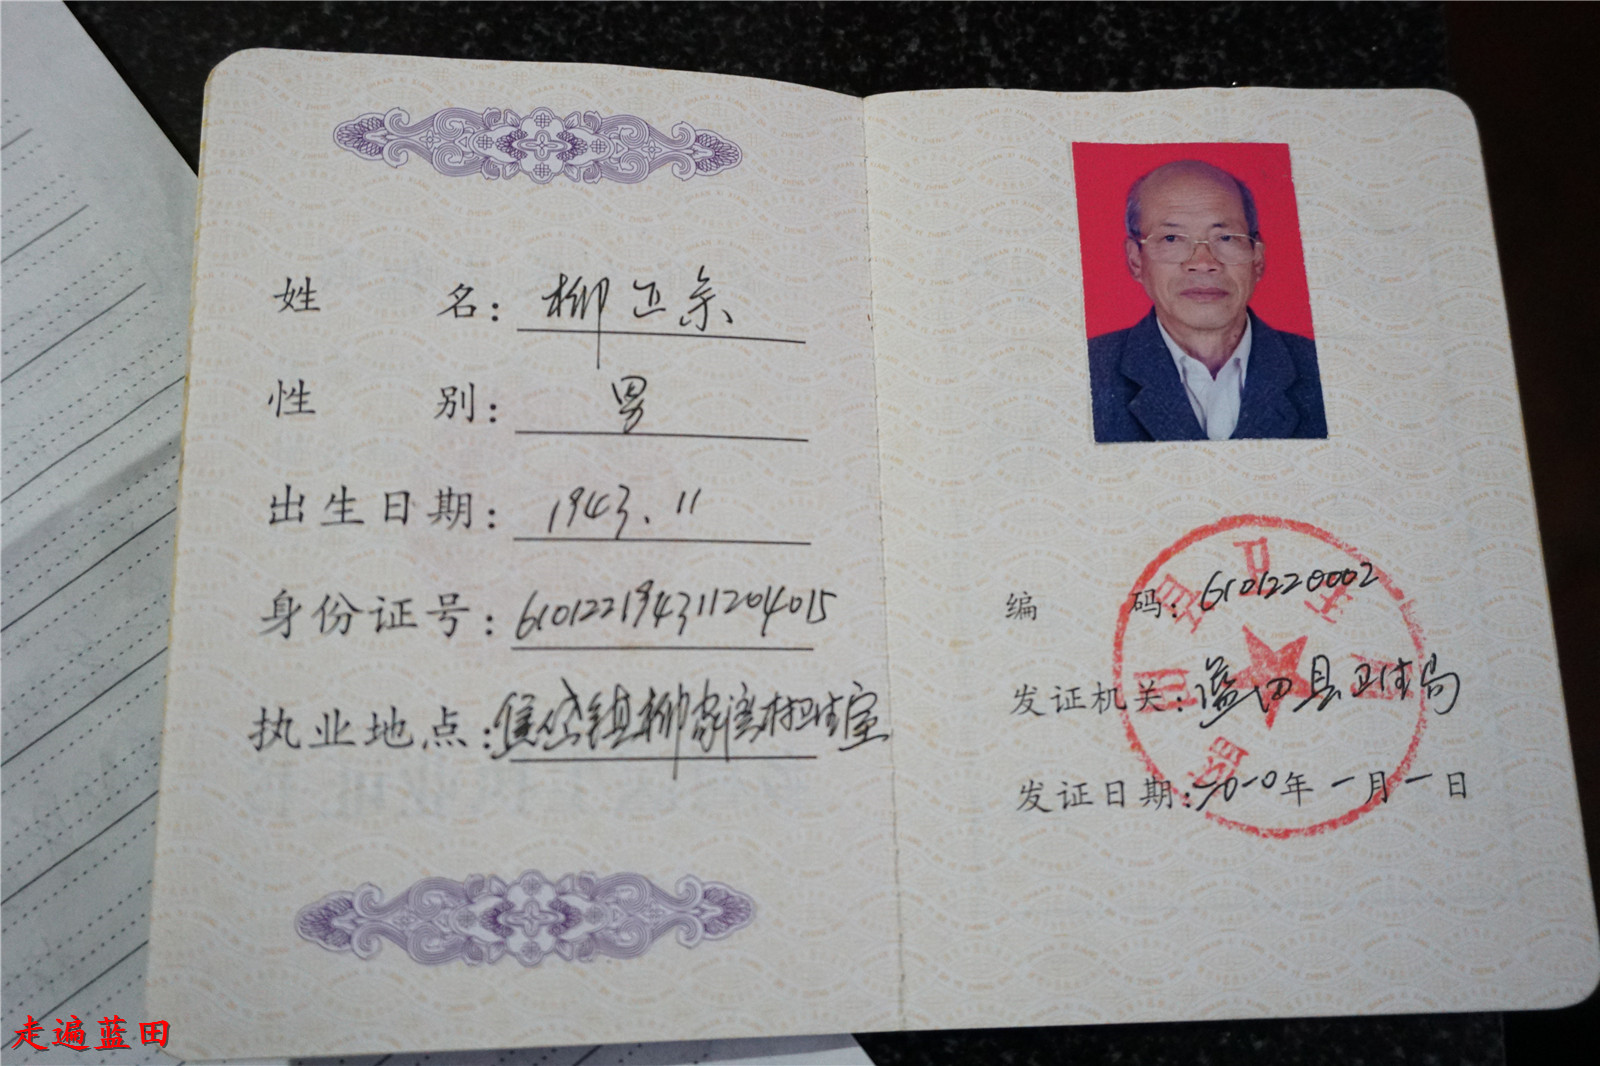 姓名：柳正宗
性别：男
出生日期：1943.11
身份证号：610122194311204015
执业地点：焦岱镇柳家湾村卫生室
编码：6101220002
发证机关：蓝田县卫生局
发证日期：二0一0年一月一日
走遍蓝田